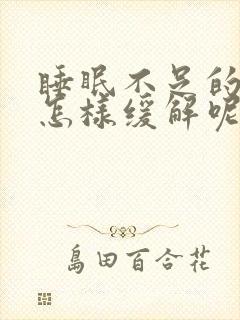 睡眠不足的
怎樣緩解呢
島田百合花